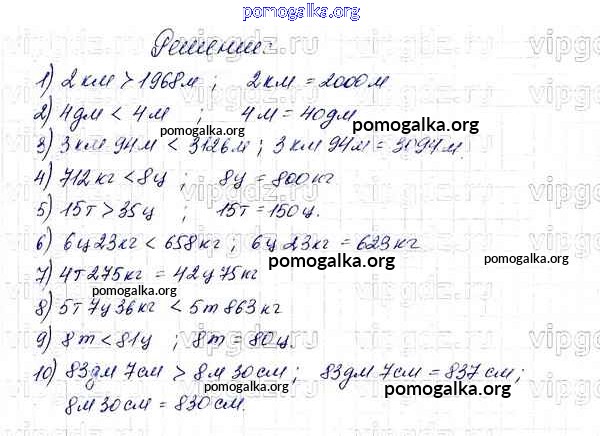 pomogalka.org
Решение:
1) 2 км > 1968 м ; 2 км = 2000 м
2) 4 дм < 4 м ; 4 м = 40 дм
pomogalka.org pomogalka.org
3) 3 км 94 м < 3126 м ; 3 км 94 м = 3094 м.
4) 712 кг < 8 ц ; 8 ц = 800 кг
5) 15 т > 35 ц ; 15 т = 150 ц.
6) 6 ц 23 кг < 658 кг ; 6 ц 23 кг = 623 кг
pomogalka.org
7) 4 т 275 кг = 42 ц 75 кг
pomogalka.org
8) 5 т 7 ц 36 кг < 5 т 863 кг
9) 8 т < 81 ц ; 8 т = 80 ц.
pomogalka.org
10) 83 дм 7 см > 8 м 30 см ; 83 дм 7 см = 837 см ;
pomogalka.org pomogalka.org
8 м 30 см = 830 см.